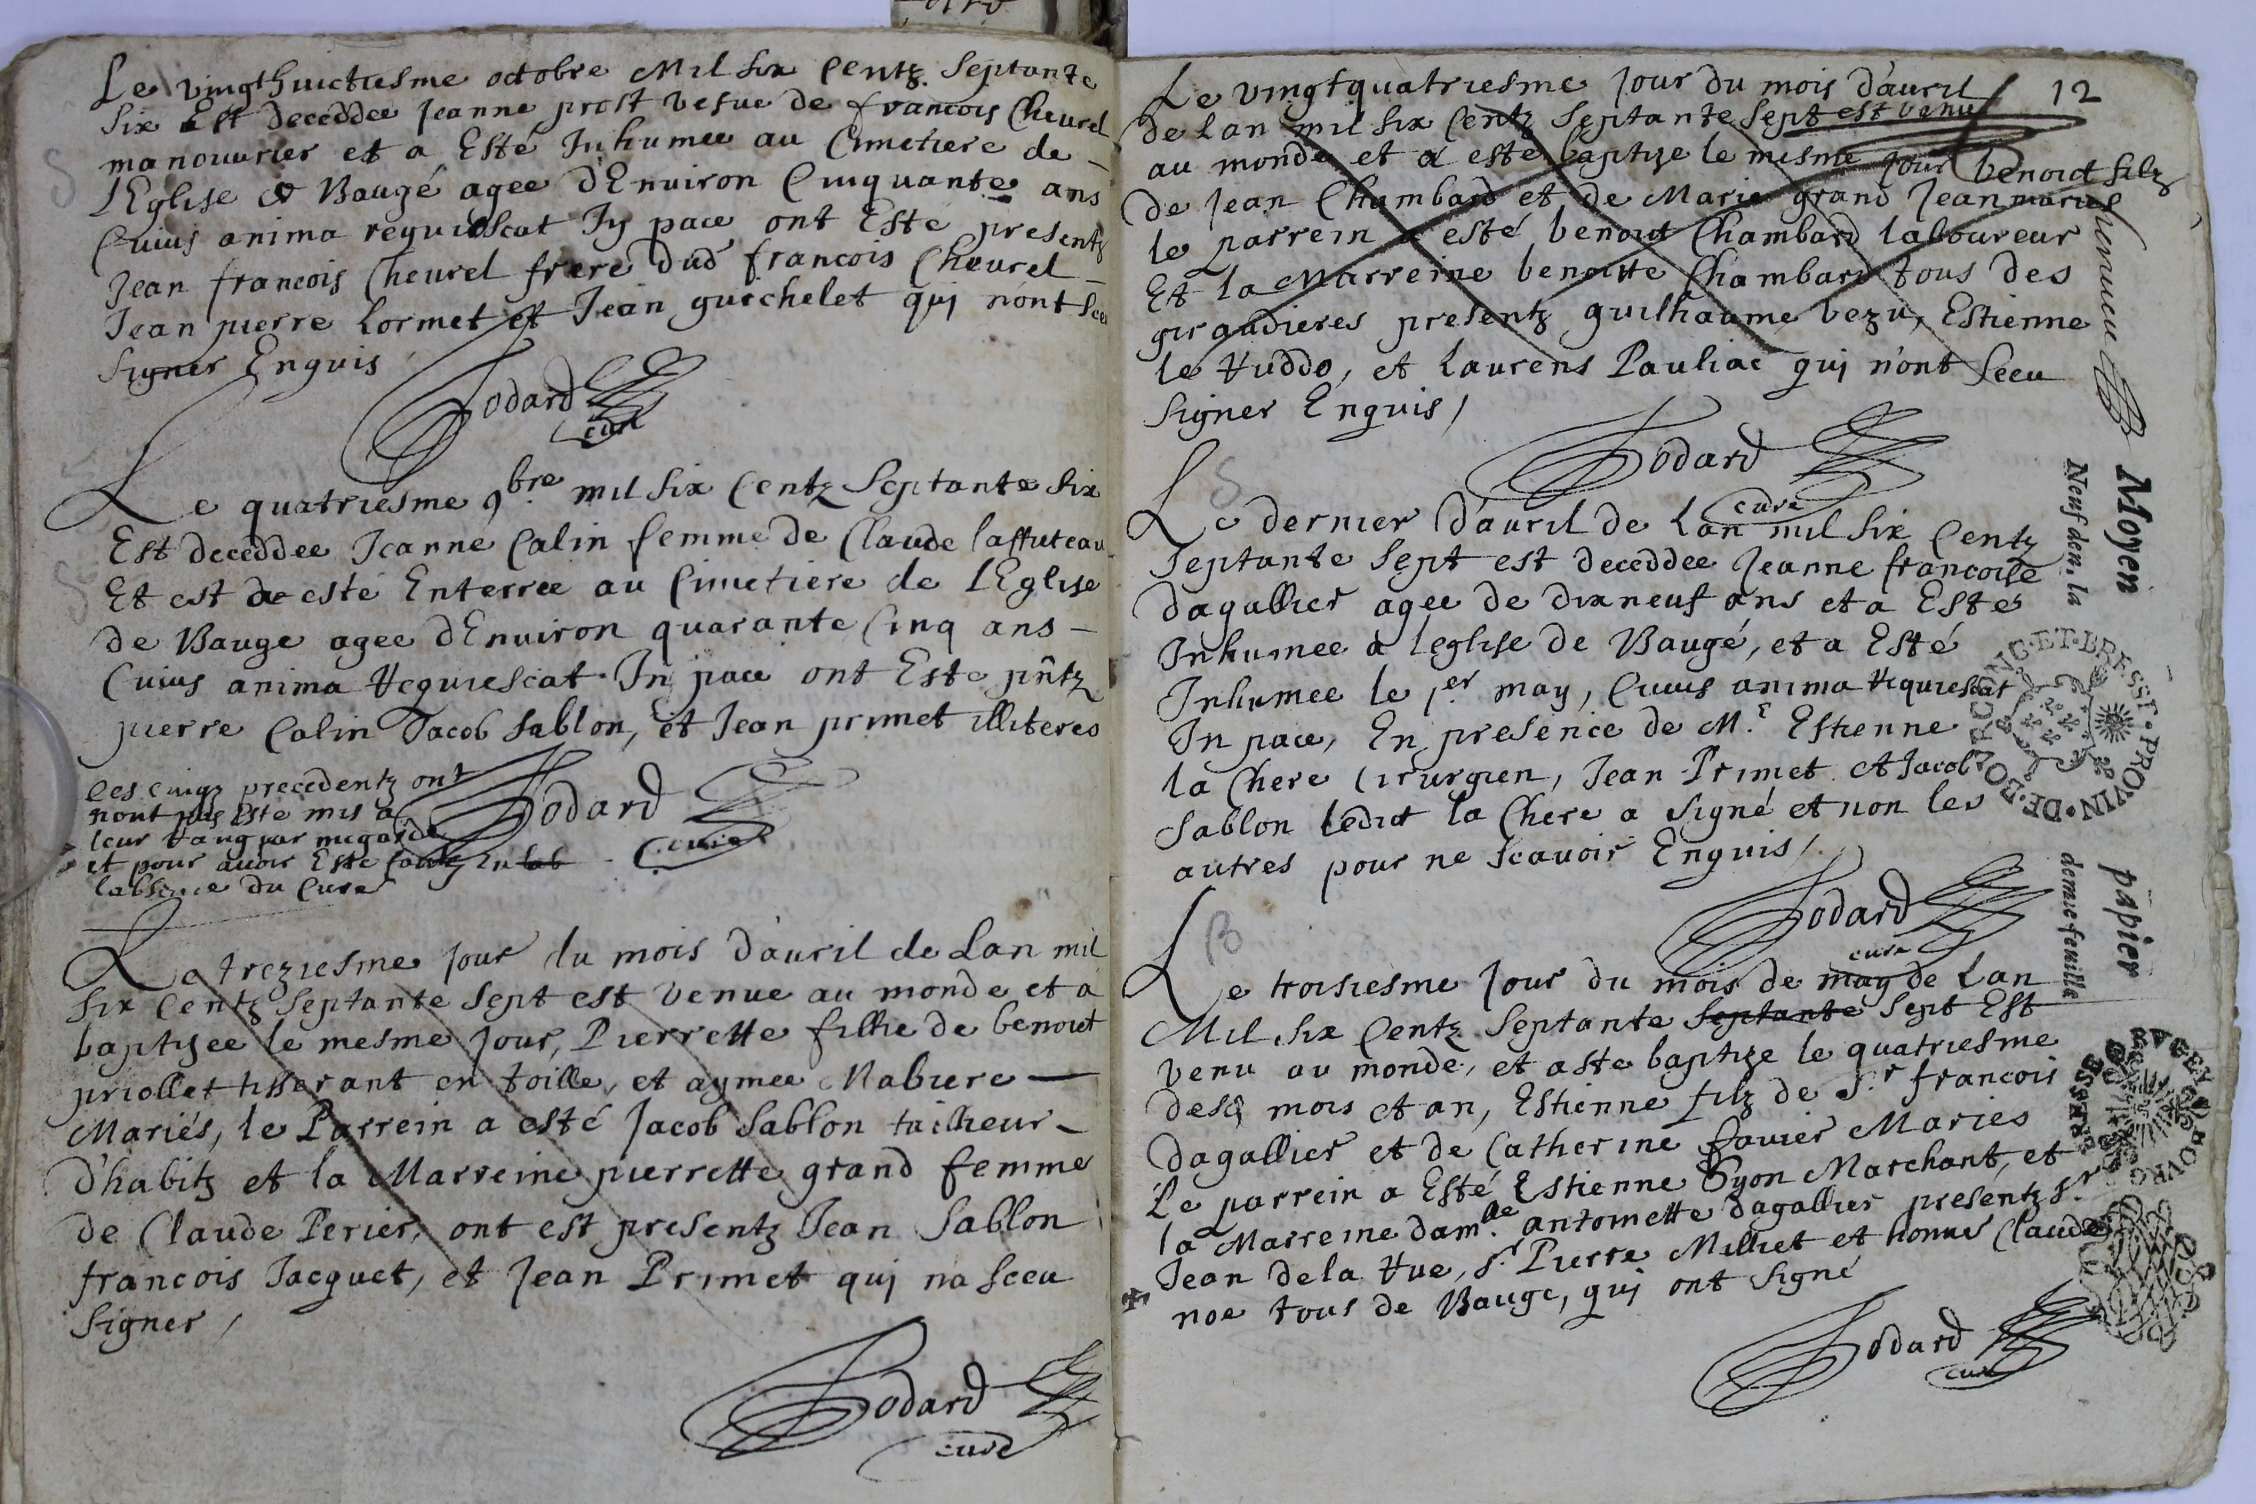 Le vingthuictiesme octobre Mil six Centz Septante
Six Est deceddee Jeanne prost vefue de francois Cheurel
manouurier et a Esté Inhumee au Cimetiere de
l'Eglise de Baugé agee d'Enuiron Cinquante ans
Cuius anima requiescat In pace ont Esté presentz
Jean francois Cheurel frere dud francois Cheurel
Jean pierre Lormet et Jean guichelet qui n'ont sceu
signer Enquis
Godard
curé
Le quatriesme 9bre mil six Centz Septante six
Est deceddee Jeanne Calin femme de Claude laffuteau
Et est esté Enterree au Cimetiere de l'Eglise
de Bauge agee d'Enuiron quarante Cinq ans
Cuius anima Requiescat In pace ont Este pntz
pierre Calin Jacob Sablon, et Jean primet illiteres
Les cinqz precedentz ont
nont pas Este mis a
leur rang par megarde
et pour auoir Este en
labsence du Curé
Godard
curé
Le treziesme jour du mois d'auril de Lan mil
six Centz Septante sept est venue au monde et a
baptizee le mesme jour, Pierrette fillie de benoict
priollet tisserant en toille, et aymee Mabiere
Mariés, le Parrein a esté Jacob Sablon tailheur
d'habitz et la Marreine pierrette grand femme
de Claude Perier, ont est presentz Jean Sablon
francois Jacquet, et Jean Primet qui na sceu
signer,
Godard
curé
12
Le vingtquatriesme Jour du mois d'auril
de Lan mil six Centz Septante Sept est venu
au monde et a esté baptize le mesme jour benoict filz
de Jean Chambard et de Marie grand Jean mariés
le parrein a esté benoict Chambard laboureur
Et la Marreine benoitte Chambard tous des
giraudieres presentz guilhaume vezu, Estienne
le Ruddo, et Laurens Pauliac qui n'ont sceu
signer Enquis,
Godard
curé
Le dernier d'auril de Lan mil six Centz
Septante Sept est deceddee Jeanne francoise
dagallier agee de dixneuf ans et a Esté
Inhumee a leglise de Baugé, et a Esté
Inhumee le per may, Cuius anima Requiescat
In pace, En presence de Mr Estienne
la Chere Cirurgien, Jean Primet et Jacob
Sablon ledict la Chere a signé et non les
autres pour ne scauoir Enquis,
Godard
curé
B
Le troisiesme Jour du mois de may de Lan
Mil six Centz Septante septante Sept Est
venu au monde, et a este baptize le quatriesme
mois et an, Estienne filz de Sr francois
dagallier et de Catherine fauier Mariés
Le parrein a Esté Estienne Marchant, et
la Marreine damlle antoinette dagallier presentz sr
Jean dela Rue, Sr Pierre Milliet et honne Claude
noe tous de Bauge, qui ont signé
Godard
curé
Moyen papier
Neuf den. la demie feuille
DE·BOVRGONG·ET·BRESSE·PROVIN·